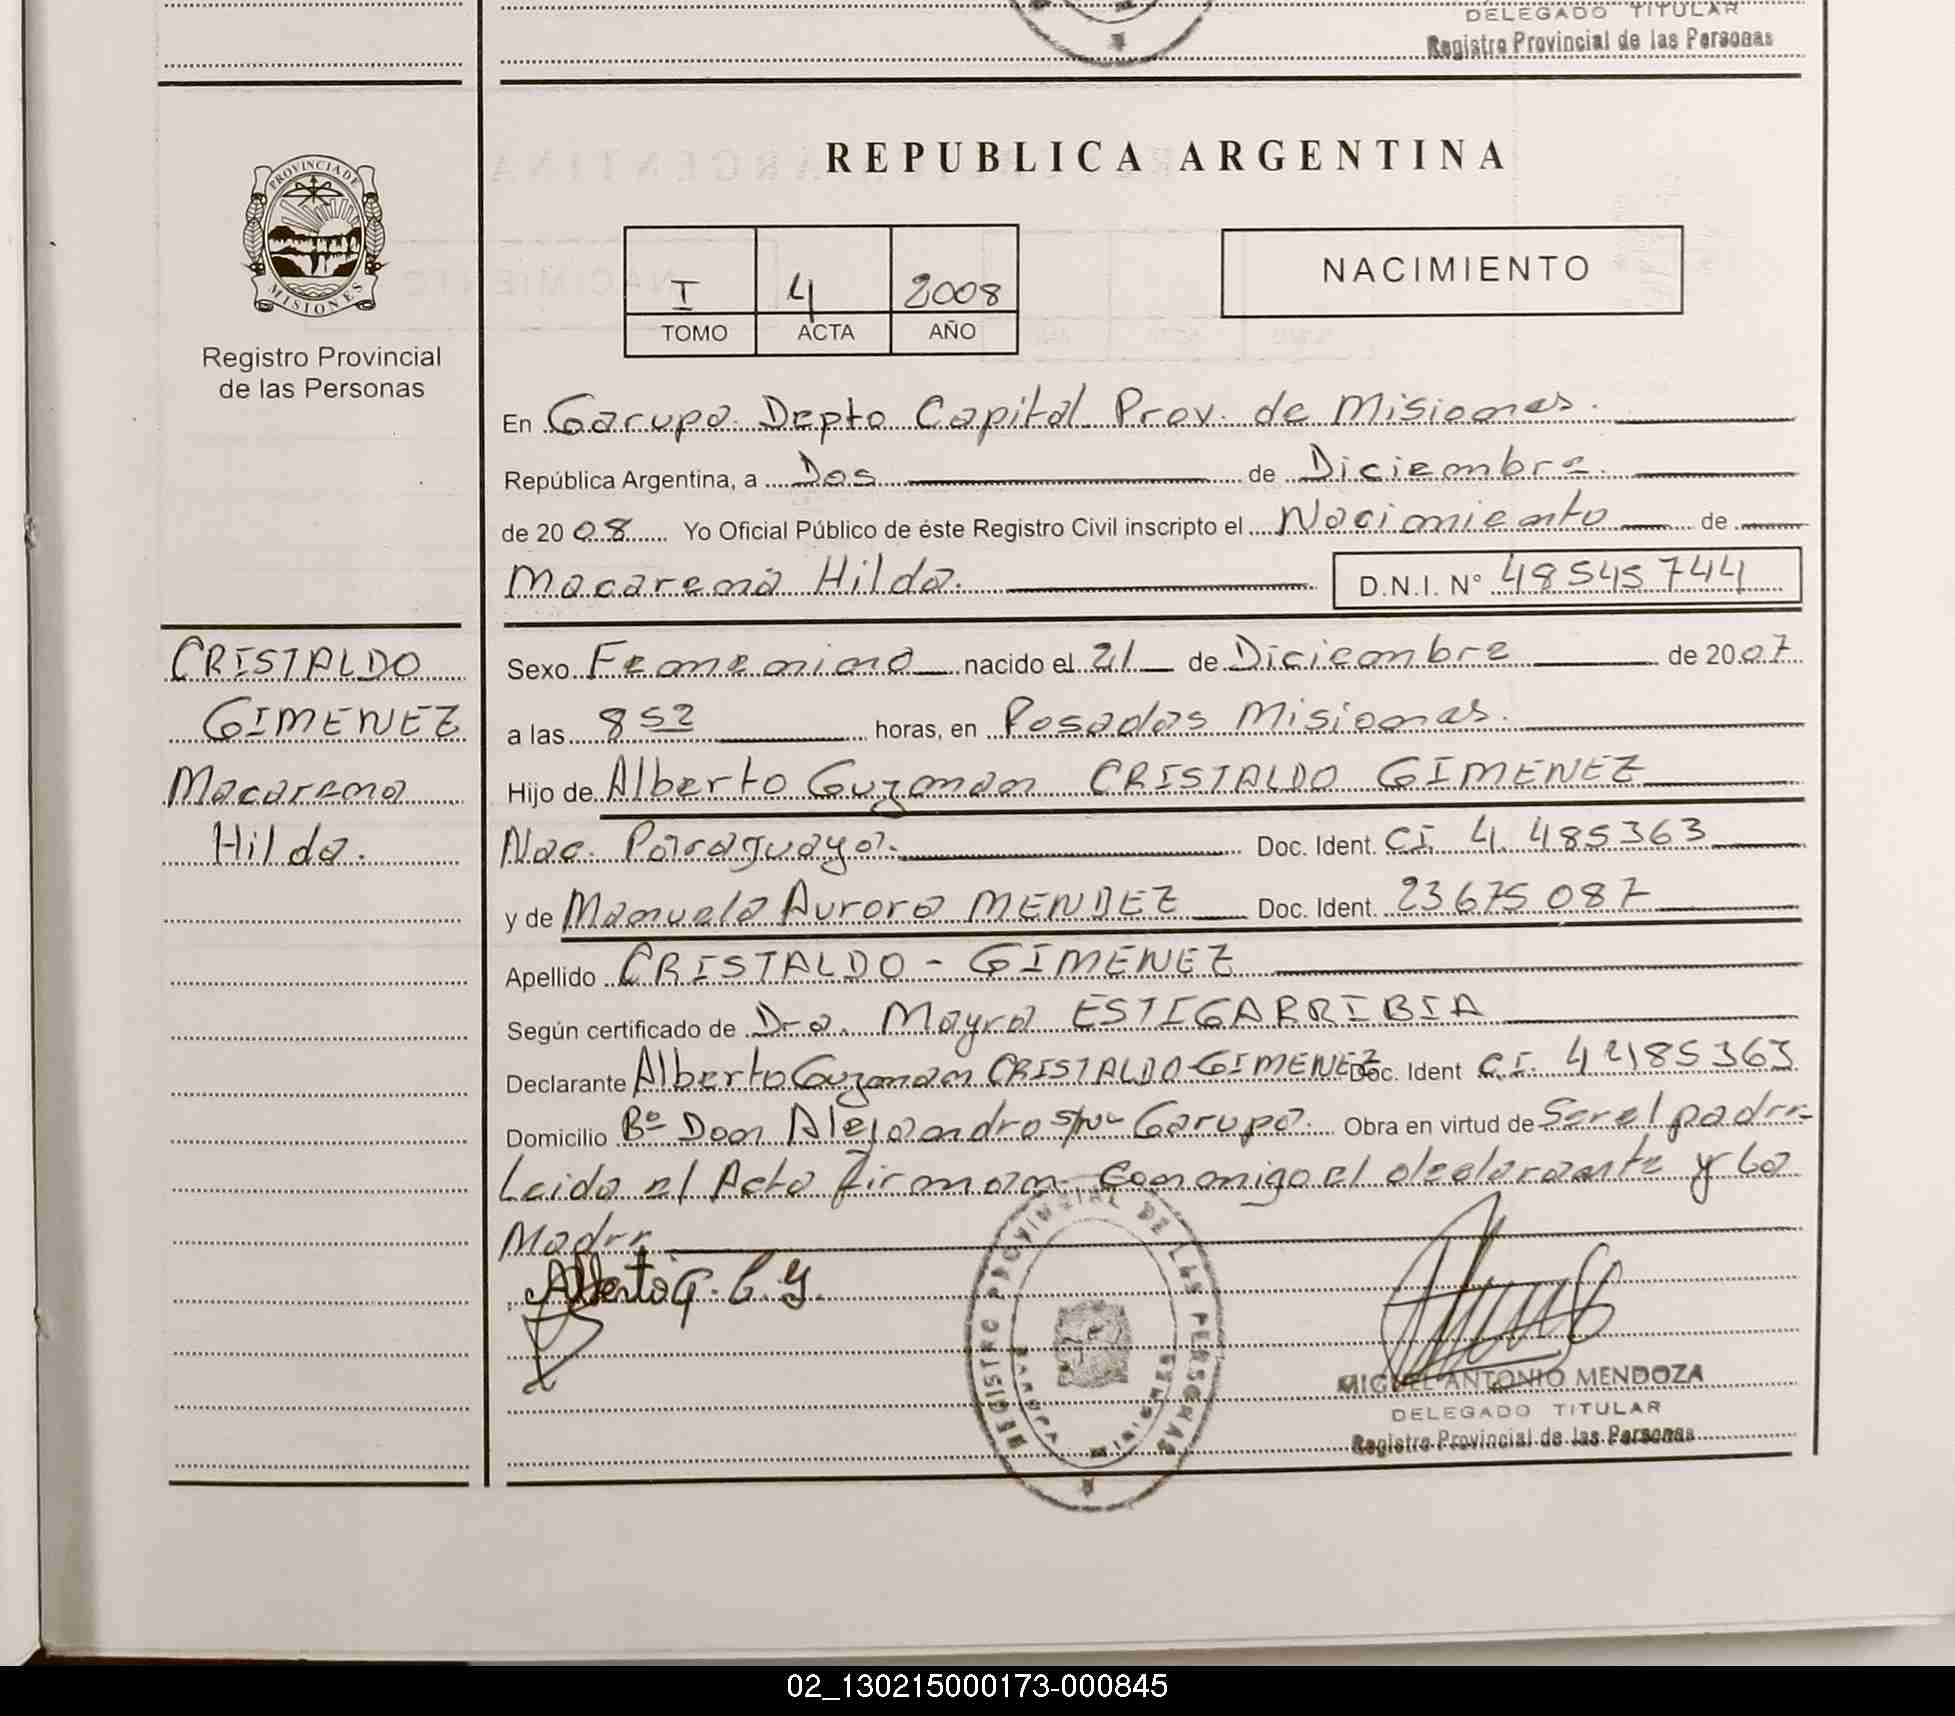 DELEGADO TITULAR
Registro Provincial de las Personas
PROVINCIA DE
MISIONES
Registro Provincial
de las Personas
REPUBLICA ARGENTINA
I 4 2008
TOMO ACTA AÑO
NACIMIENTO
En Garupa Depto Capital Prov. de Misiones.
República Argentina, a Dos de Diciembre.
de 2008 Yo Oficial Público de éste Registro Civil inscripto el Nacimiento de
Macarena Hilda. D.N.I. N° 48545744
CRISTALDO
GIMENEZ
Macarena
Hilda.
Sexo Femenino nacido el 21 de Diciembre de 2007
a las 8 52 horas, en Posadas Misiones.
Hijo de Alberto Guzman CRISTALDO GIMENEZ
Nac. Paraguaya. Doc. Ident. CI. 4.485363
y de Manuela Aurora MENDEZ Doc. Ident. 23675087
Apellido CRISTALDO - GIMENEZ
Según certificado de Dra. Mayra ESTIGARRIBIA
Declarante Alberto Guzman CRISTALDO-GIMENEZ Doc. Ident C.I. 4485363
Domicilio Bº Don Alejandro s/n Garupa. Obra en virtud de Ser el padre
Leida el Acta firman conmigo el declarante y la
Madre
Alberto G. C. G.
REGISTRO PROVINCIAL DE LAS PERSONAS
GARUPA MISIONES
MIGUEL ANTONIO MENDOZA
DELEGADO TITULAR
Registro Provincial de las Personas
02_130215000173-000845